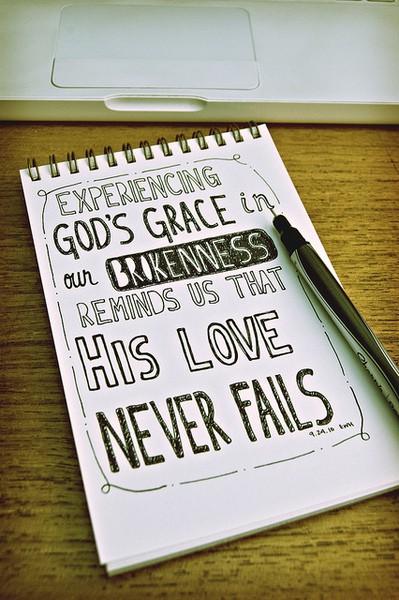 EXPERIENCING
GOD'S GRACE in
our BROKENNESS
REMINDS US THAT
HIS LOVE
NEVER FAILS
9.24.10